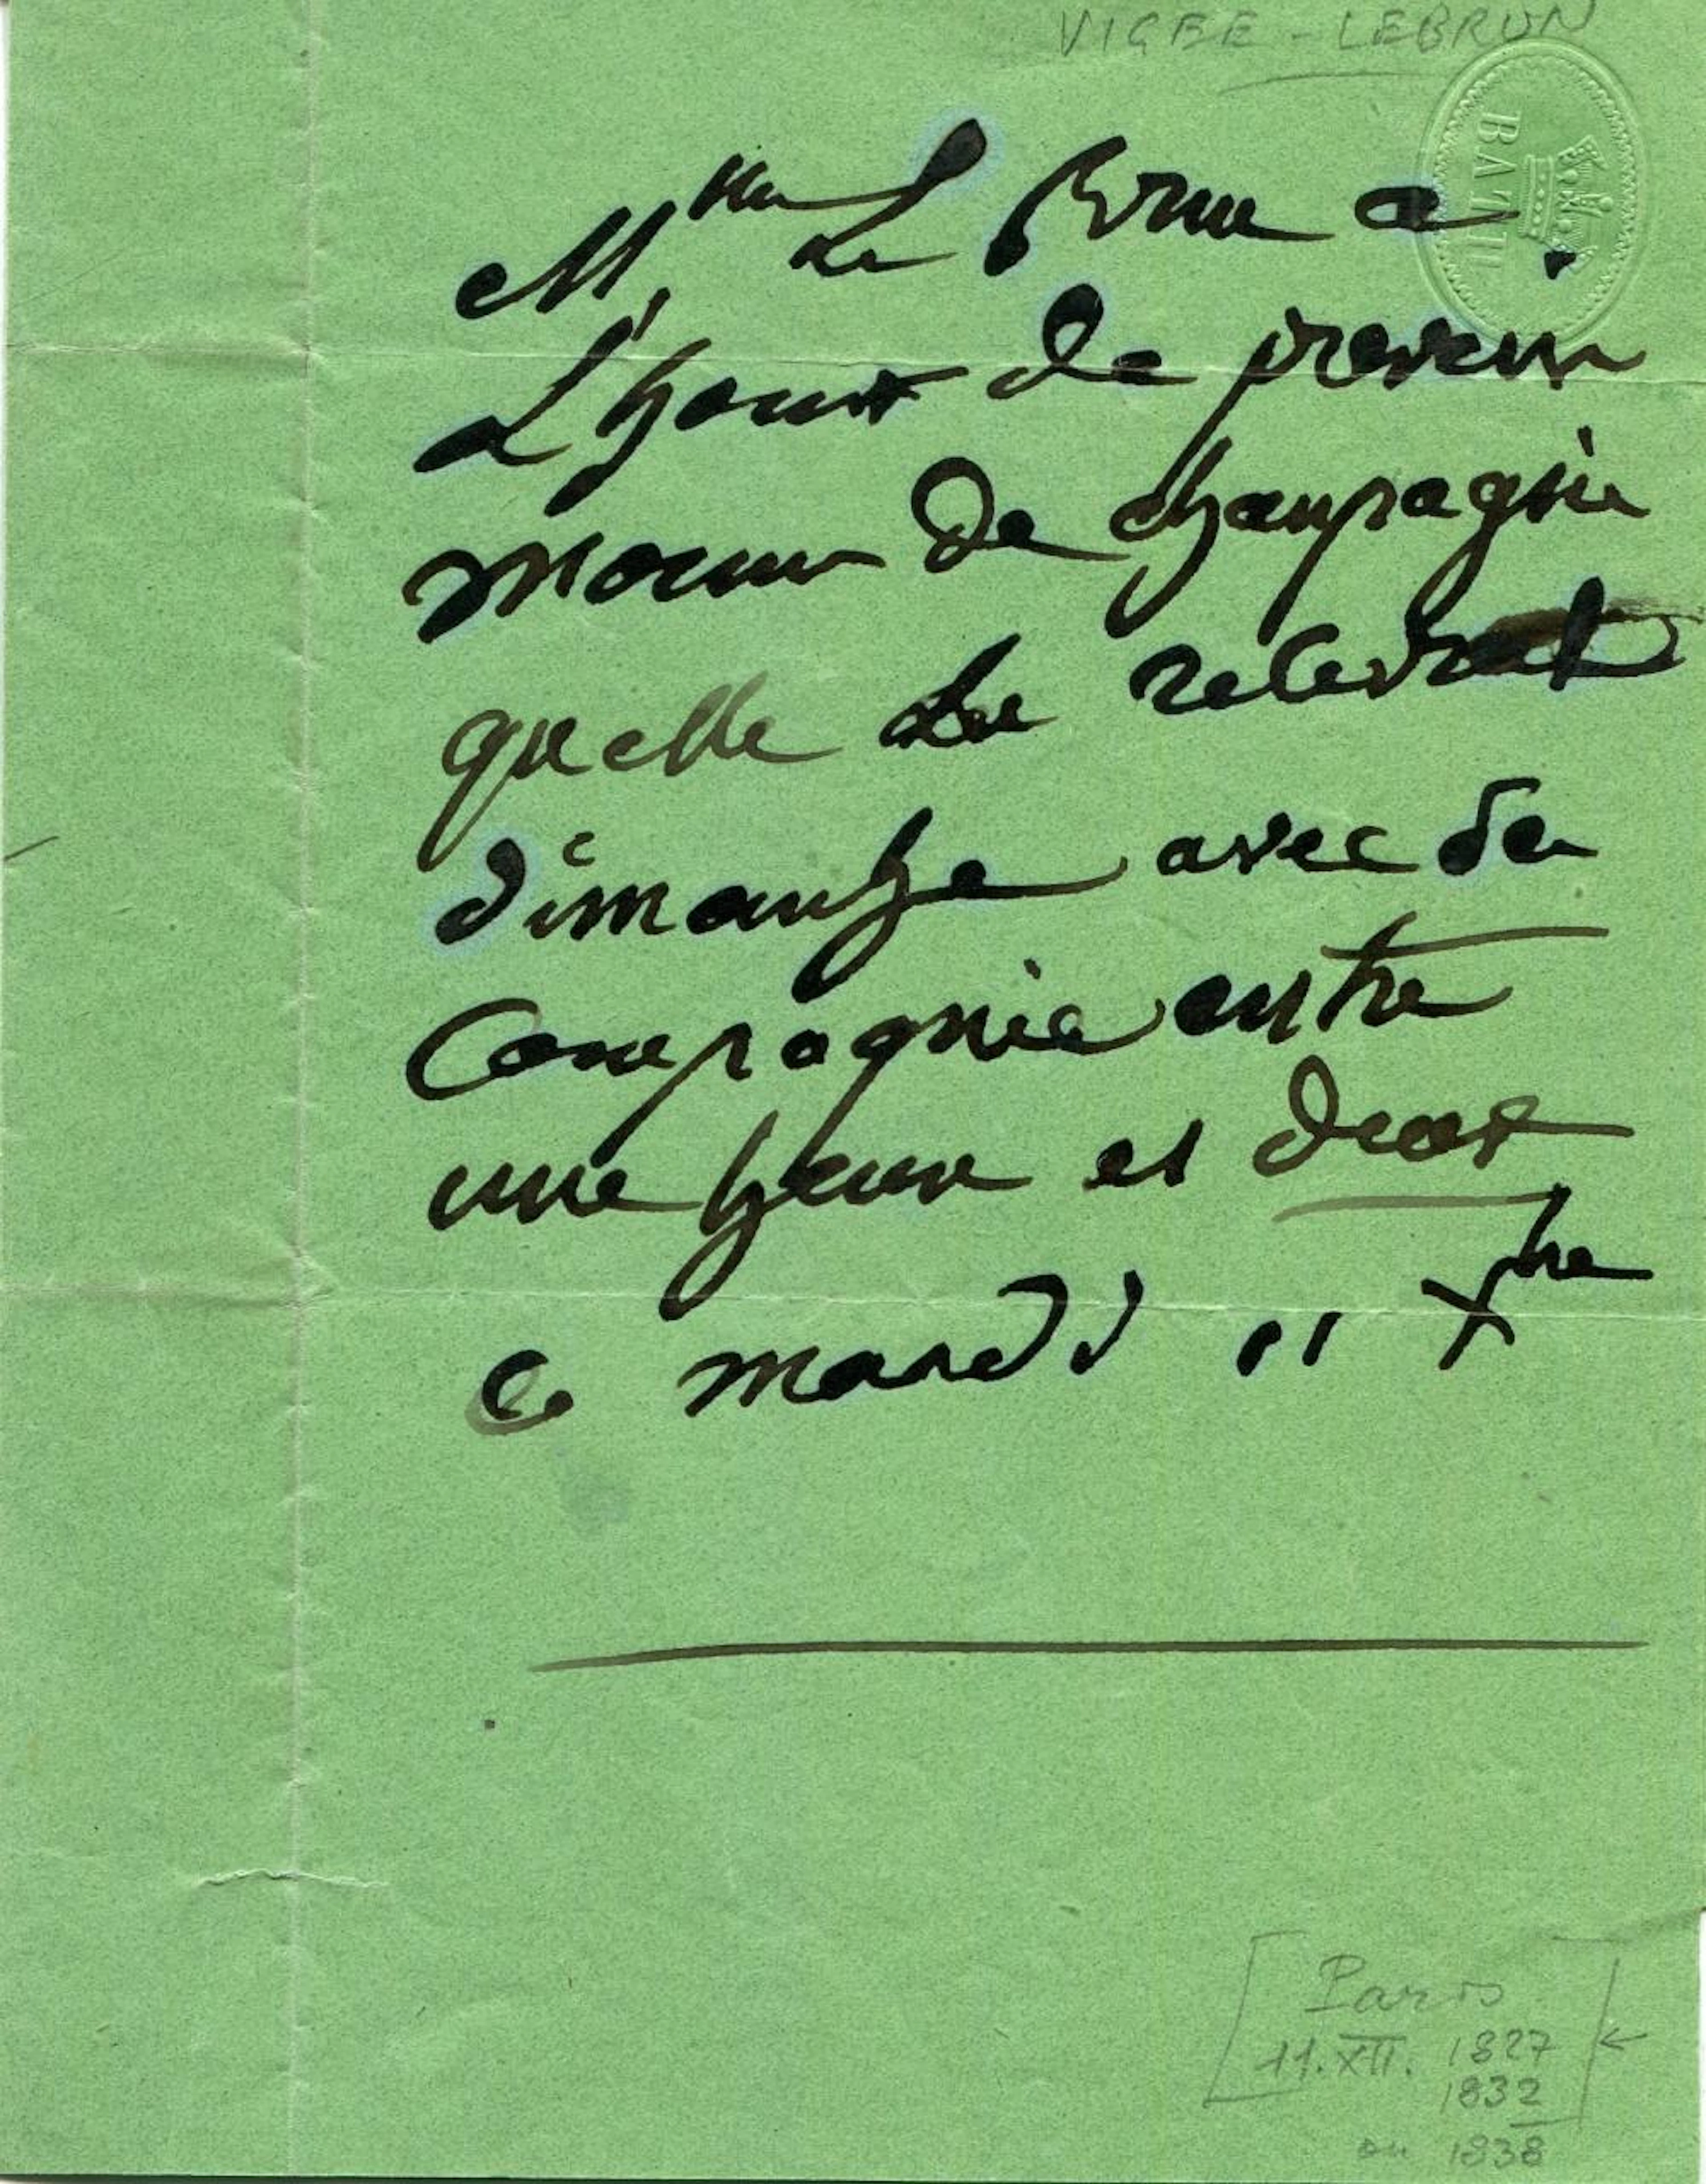 VIGEE - LEBRUN
BATH
Mme Le Brun a
L'honr de prevenir
mocieur de champagnie
quelle Le recevrat
dimanhe avec Sa
Compagnie entre
une heure et deux
ce mardi 11 Xbre
Paris
11. XII. 1827 ←
1832
ou 1838